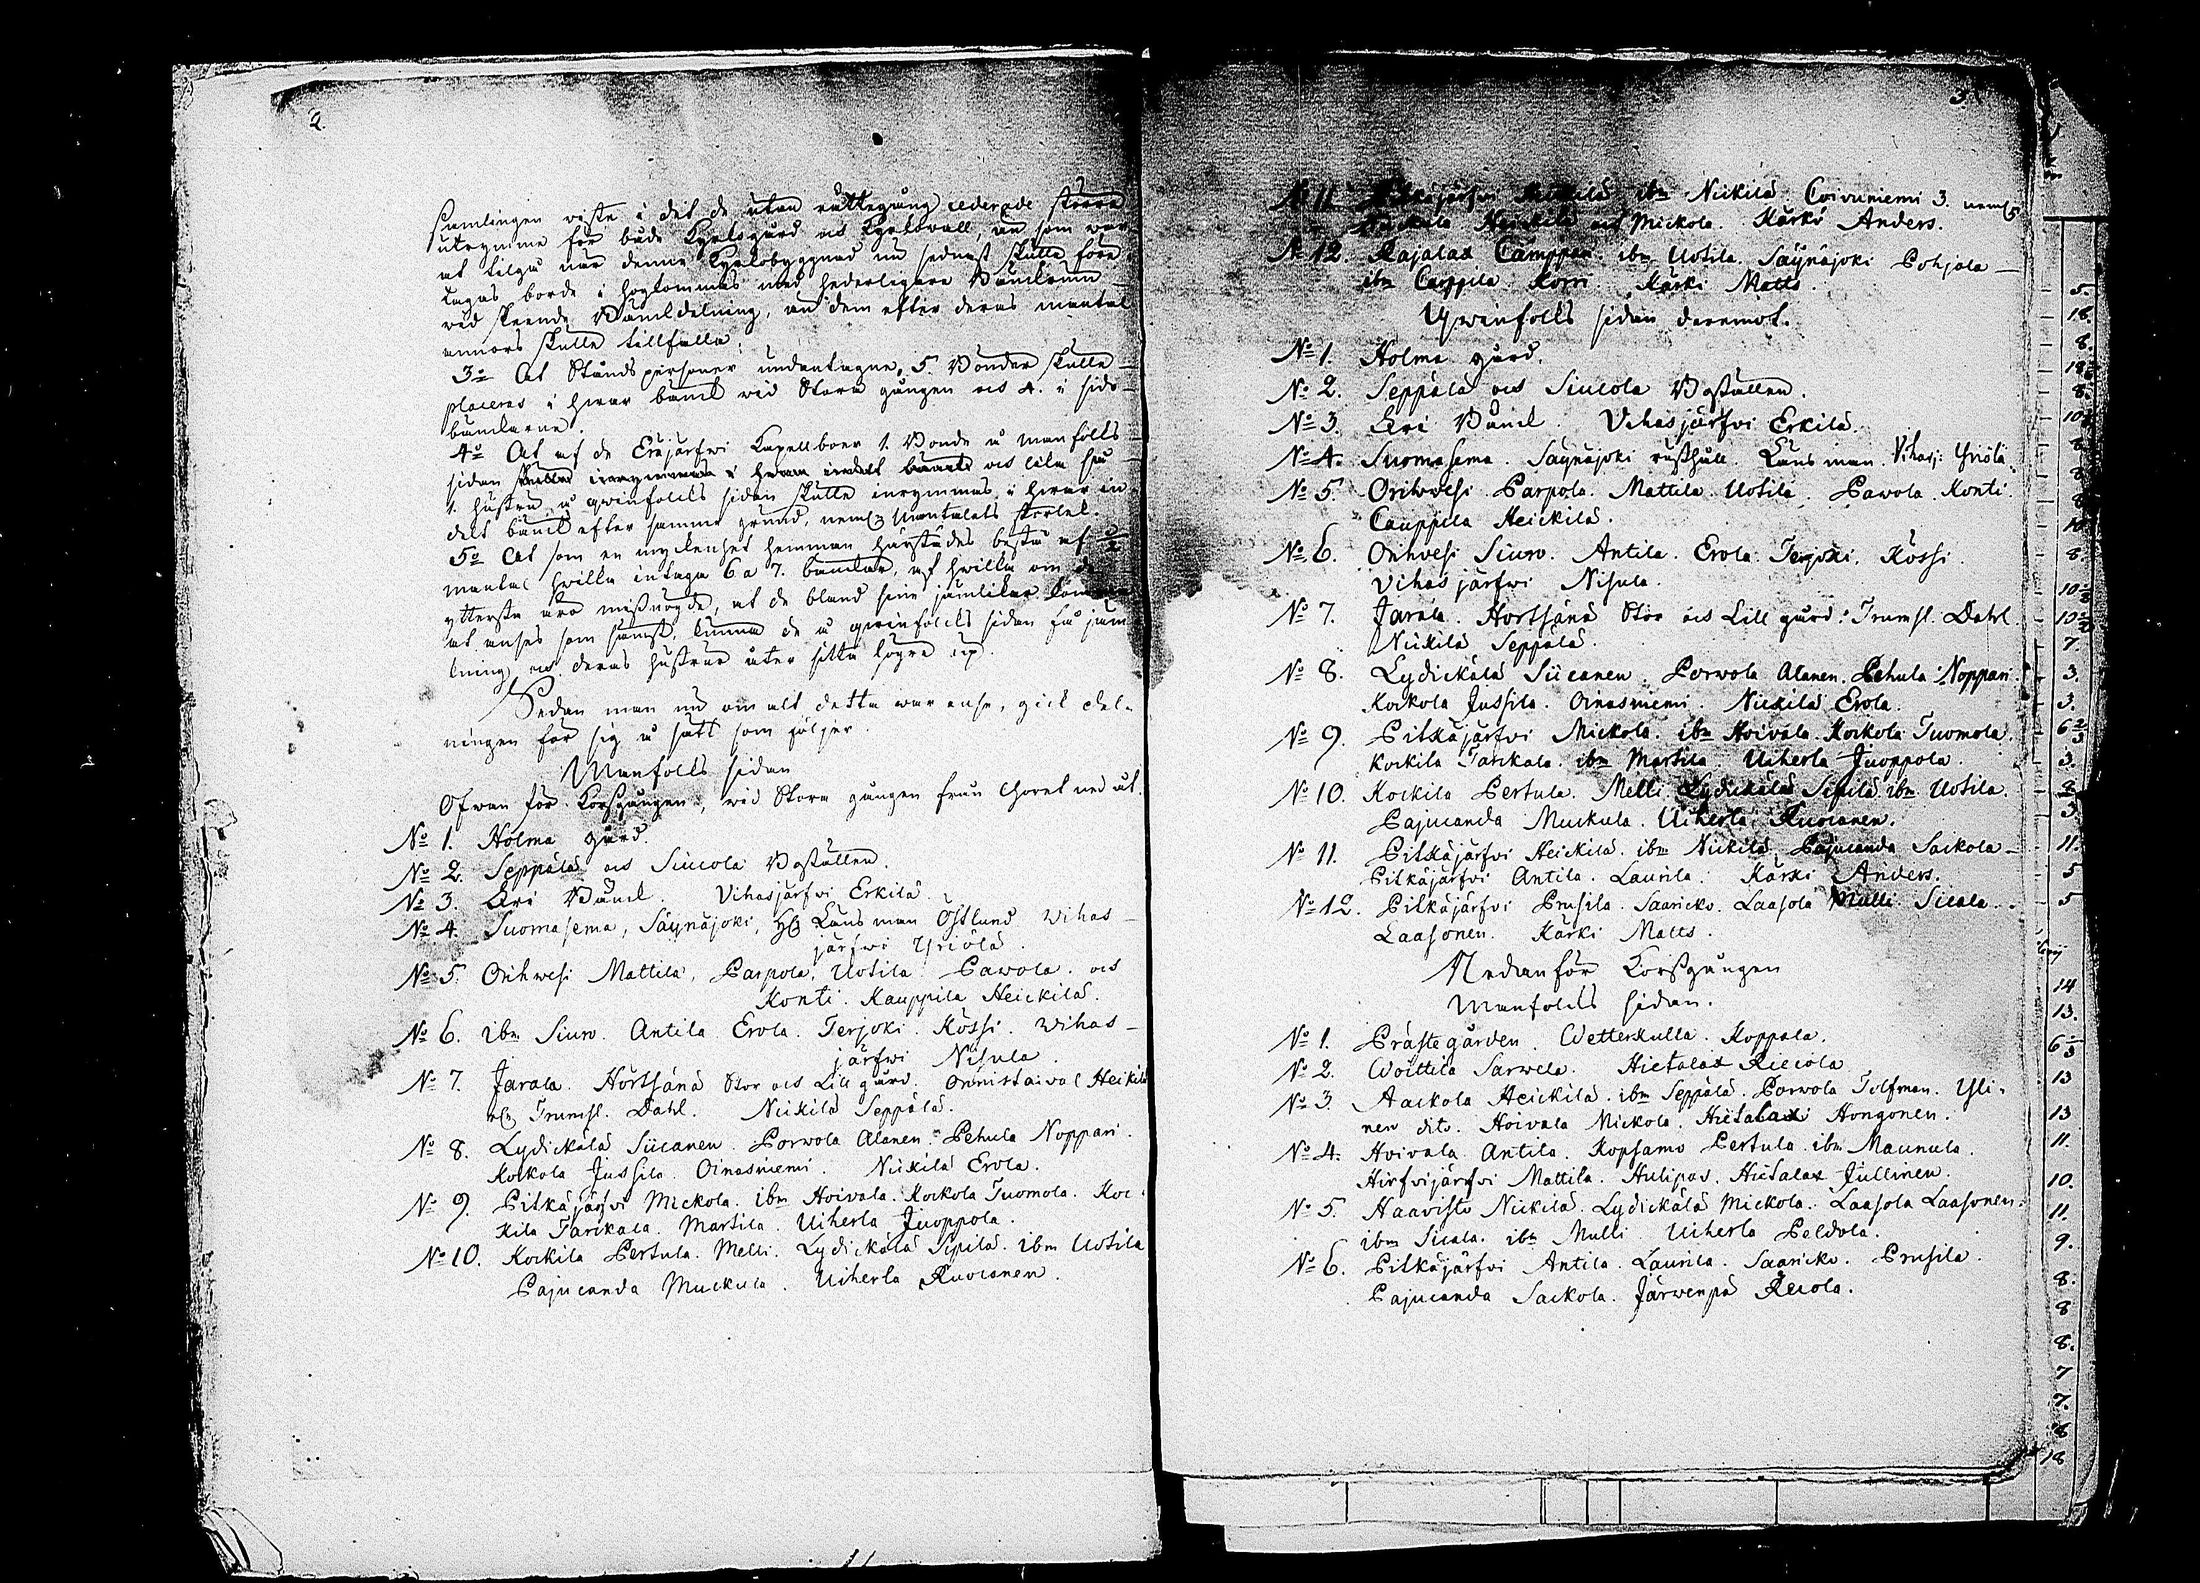 2.
samlingen wiste i det de utan rättegång cederade större
utrymme för både Kyrkogård och Kyrkovall, än som war
at tilgå när denne Kyrkobyggnad nu sednast skulle före
tagas borde i hogkommas med hederligare Bänckrum
wid skeende Bänckdelning, än dem efter deras mantal
annars skulle tillfalla.
3o At Ståndspersoner undantagne, 5. Bönder skulle
placeras i hwar bänck wid Stora gången och 4. i sido
bänckarne.
4o At af de Eräjärfwi Capellboer 1. Bonde å manfolks
sidan och lika så
1. hustru å qwinfolcks sidan skulle inrymmas i hwar in
delt bänck efter samma grund, neml. Mantalets storlek.
5o At som en myckenhet hemman härstädes bestå af 1/2
mantal hwilka intaga 6 a 7. bänckar, af hwilka om de
ytterste äro missnögde, at de bland sine jämlikar komma
at anses som sämst, kunna de å qwinfolcks sidan få jäm
kning och deras hustrur åter sitta högre up.
Sedan man nu om alt detta war ense, gick del-
ningen för sig å sätt som följer.
Manfolks sidan
Ofwan för Korsgången, wid Stora gången från Choret ned åt.
No 1. Holma gård.
No 2. Seppälä och Siucola Boställen.
No 3. Kri Bänck. Vihasjärfwi Erkilä
No 4. Suomasema, Säynäjoki, H. Länsman Östlund Wihas-
järfwi Yriölä.
No 5. Orihwesi Mattila, Parpola, Uotila Pawola. och
Konti. Kauppila Heickilä.
No 6. ibm Siuro. Antila Erola. Terjoki. Kössi. Wihas-
järfwi Nisula.
No 7. Jarala. Hörtsänä Stor och Lill gård. Onnistaival Heikilä
och Trumsl. Dahl. Nickilä Seppälä.
No 8. Lydickälä Siicanen. Porwola Alanen. Pehula Noppari.
Kockola Jussila. Oinasniemi. Nickilä Erola.
No 9. Pitkäjärfvi Mickola. ibm Hoivala. Kockola Tuomola. Koc-
kila Tarckala. Martila. Uiherla Juoppola.
No 10. Kockila Pertula. Melli. Lydickälä Sipilä. ibm Uotila
Pajucanda Muckula. Uiherla Ruoianen.
3.
No 11. Pitkäjärfvi Heickilä, ibm Nickilä Coivuniemi 3. neml.
Heickilä och Mickola. Kärki Anders.
No 12. Rajalax Camppari. ibm Uotila. Säynäjoki Pohjola
ibm Carppila. Korri. Kärki Matts.
Qwinfolks sidan deremot.
No 1. Holma gård.
No 2. Seppälä och Siucola Boställen.
No 3. Kri Bänck. Vihasjärfwi Erkilä.
No 4. Suomasema. Säynäjoki rusthåll. Länsman. Vihasj: Yriölä
No 5. Orihwesi Parpola. Mattila Uotila. Pawola. Konti.
Cauppila Heickilä.
No 6. Orihvesi Siuro. Antila. Erola. Terjoki. Kössi.
Vihasjärfwi Nisula.
No 7. Jarala. Hortsänä Stor och Lill gård: Trumsl. Dahl
Nickilä Seppälä.
No 8. Lydickälä Siicanen. Porwola Alanen. Pehula Noppari.
Kockola Jussila. Oinasniemi. Nickilä Erola.
No 9. Pitkäjärfvi Mickola. ibm Hoivala. Kockola Tuomola.
Kockila Tarckala. ibm Martila. Uiherla Juoppola.
No 10. Kockila Pertula. Melli Lydickälä Sipilä. ibm Uotila.
Pajucanda Muckula. Uiherla Ruoianen.
No 11. Pitkäjärfvi Heickilä. ibm Nickilä Pajucanda Sackola
Pitkäjärfvi Antila. Laurila. Kärki Anders.
No 12. Pitkäjärfvi Prusila. Saaricko. Laasola Mulli Sicala.
Laasonen. Kärki Matts.
Nedanför Korssgången
Manfolcks sidan.
No 1. Prästegården. Wetterkulla. Koppala.
No 2. Woittila Sarwela. Hietalax Riccola
No 3. Aackola Heickilä. ibm Seppälä. Porwola Tolfman. Yli-
nen dito. Hoivala Mickola. Hietalax Hongonen.
No 4. Hoivala Antila. Kopsamo Pertula. ibm Maunula.
Hirfvijärfvi Mattila. Hulipas. Hietalax Jullinen.
No 5. Haavisto Nickilä. Lydickälä Mickola. Laasola Laasonen.
ibm Sicala. ibm Mulli. Uiherla Peldola.
No 6. Pitkäjärfvi Antila. Laurila. Saaricko. Prusila.
Pajucanda Sackola. Järwenpä Recola.